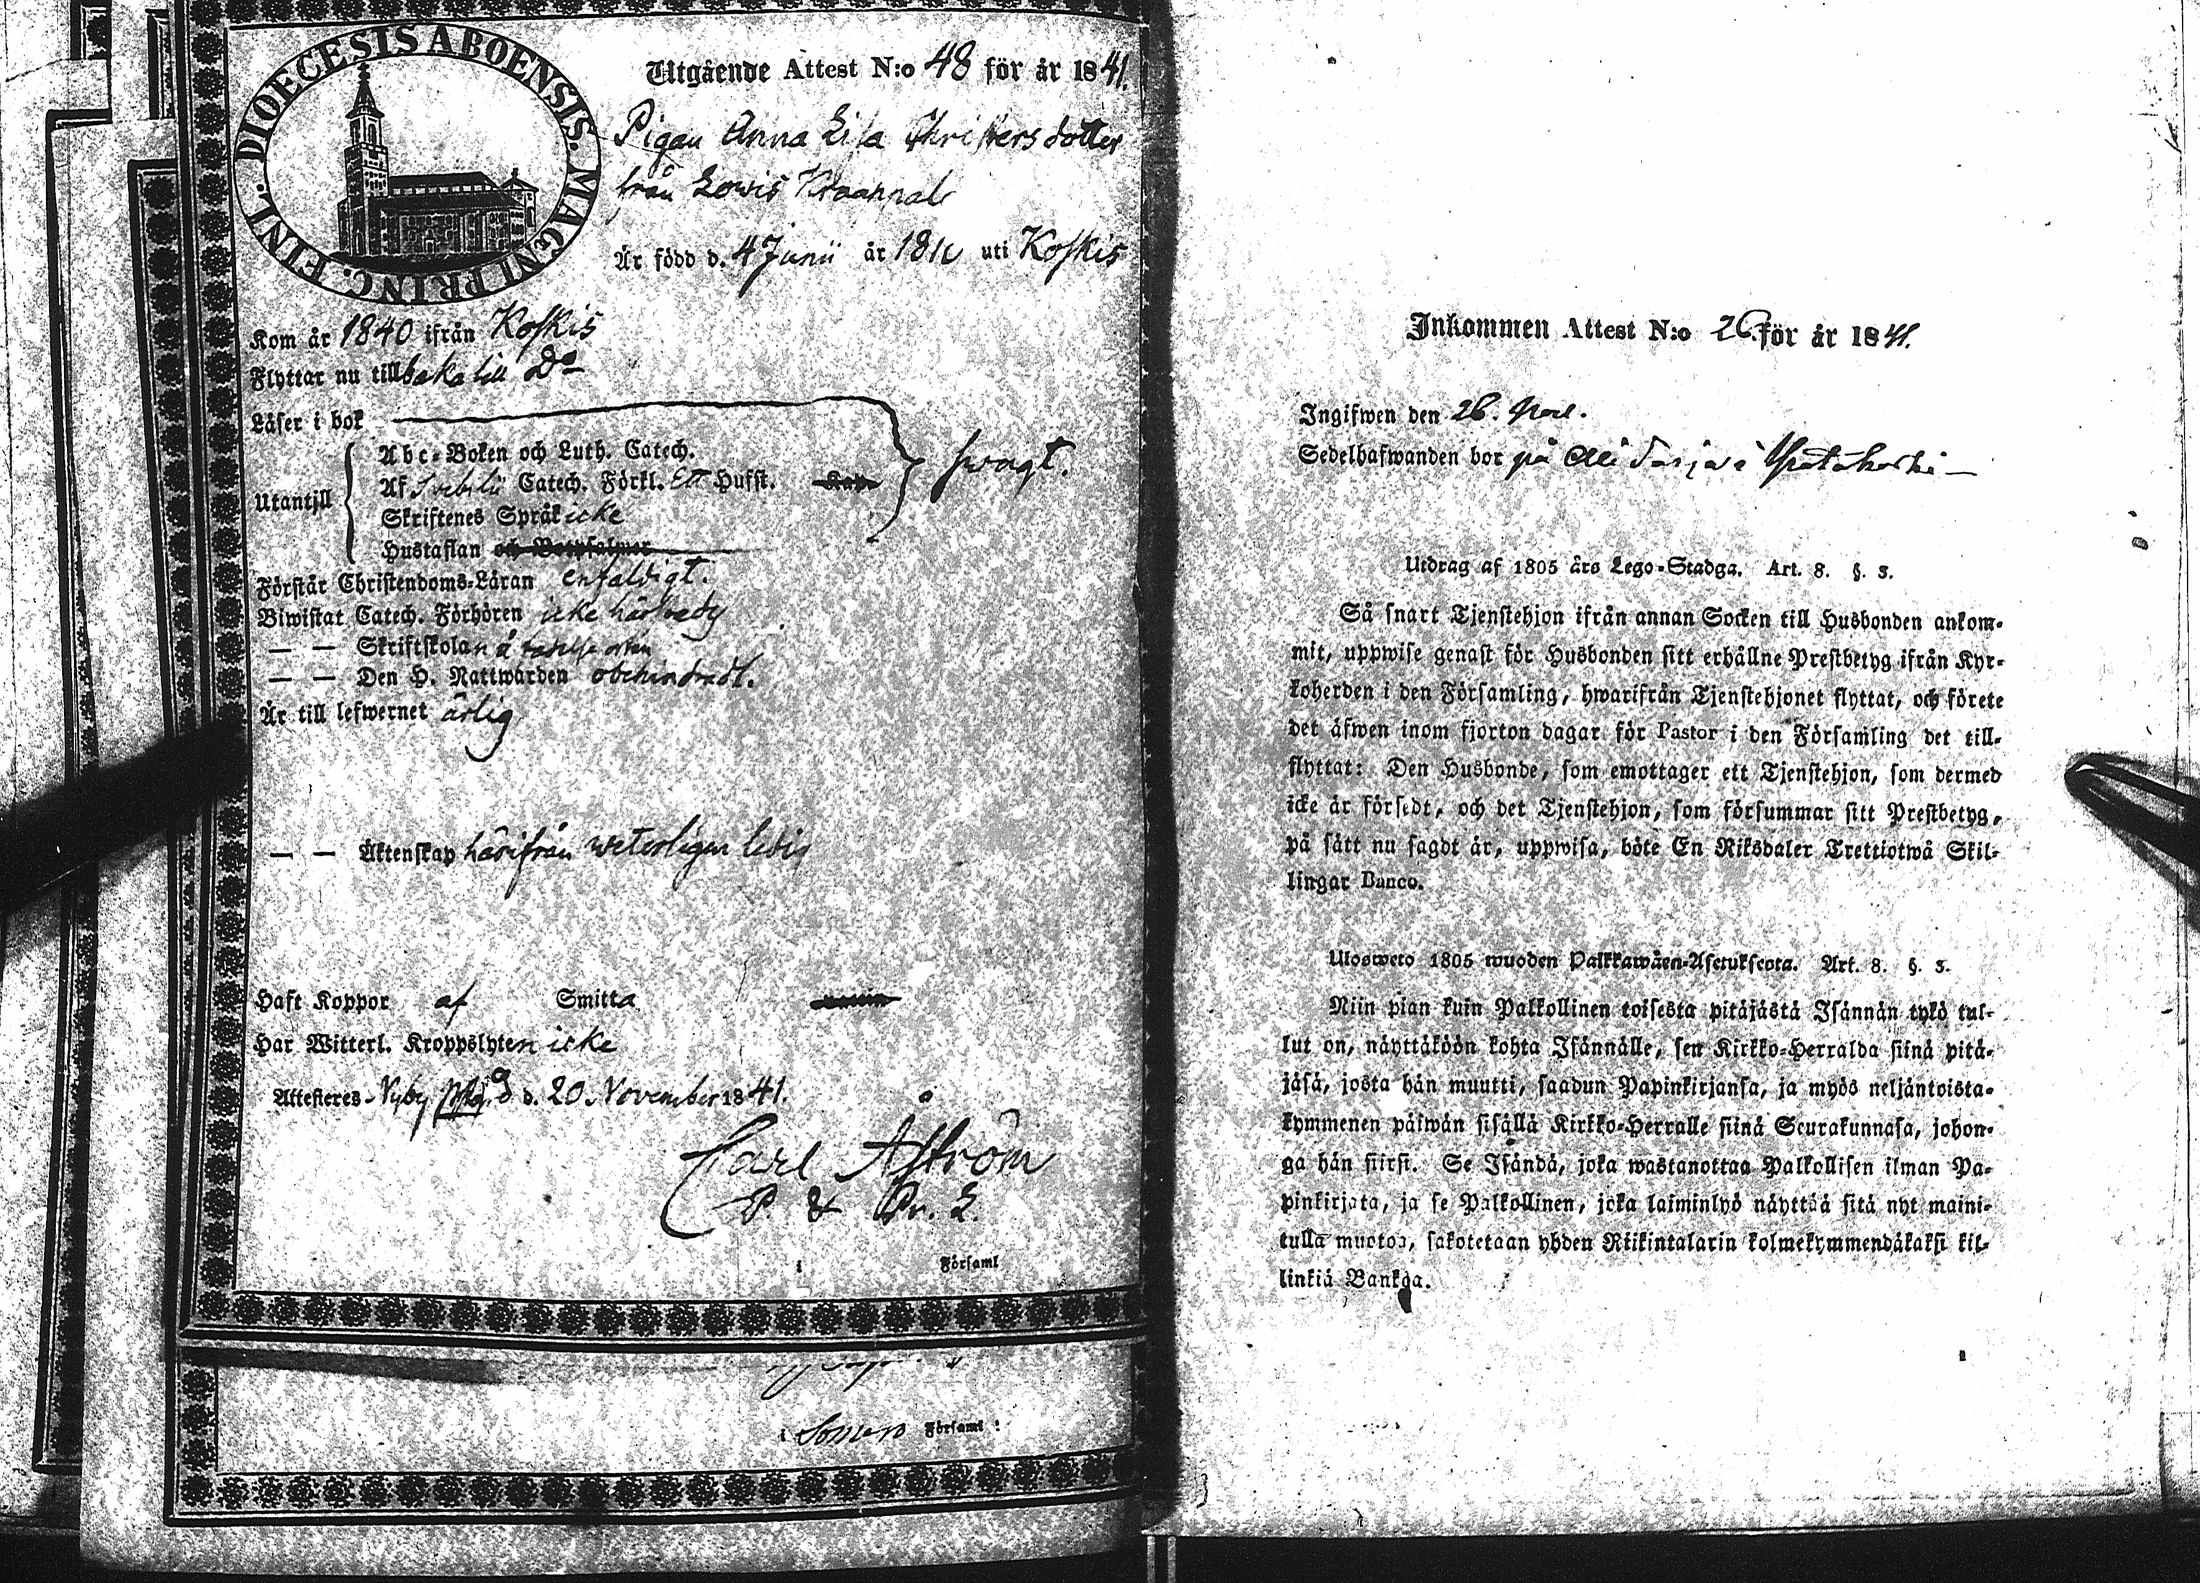 DIOECESIS ABOENSIS. MAGNI PRINC. FINL.
Utgående Attest N:o 48 för år 1841.
Pigan Anna Lisa Christersdotter
från Lowis
Är född d. 4 Junii år uti Koskis
Kom år 1840 ifrån Koskis
Flyttar nu tillbaka till Do
Läser i bok
Utantill
Abc-Boken och Luth. Catech.
Af Svebelii Catech. Förkl. Ett Hufst.
swagt.
Skriftenes Språk icke
Hustaflan och Botpsalmer
Förstår Christendoms-Läran enfaldigt.
Biwistat Catech. Förhören icke härstedes
— — Skriftskolan å
— — Den H. Nattwarden obehindradt.
Är till lefwernet ärlig
— — Äktenskap härifrån weterligen ledig
Haft Koppor af Smitta
Har Witterl. Kroppslyten icke
Attesteras Nyby d. 20 November 1841.
Carl Åström
P. &
i Församl
i Somero Församl:
Inkommen Attest N:o 26 för år 1841.
Ingifwen den 26. Nov.
Sedelhafwanden bor på
Utdrag af 1805 års Lego-Stadga. Art. 8. §. 3.
Så snart Tjenstehjon ifrån annan Socken till Husbonden ankom-
mit, uppwise genast för Husbonden sitt erhållne Prestbetyg ifrån Kyr-
koherden i den Församling, hwarifrån Tjenstehjonet flyttat, och förete
det äfwen inom fjorton dagar för Pastor i den Församling det till-
flyttat: Den Husbonde, som emottager ett Tjenstehjon, som dermed
icke är försedt, och det Tjenstehjon, som försummar sitt Prestbetyg,
på sätt nu sagdt är, uppwisa, böte En Riksdaler Trettiotwå Skil-
lingar Banco.
Ulosweto 1805 wuoden Palkkawäen-Asetuksesta. Art. 8. §. 3.
Niin pian kuin Palkollinen toisesta pitäjästä Isännän tykö tul-
lut on, näyttäköön kohta Isännälle, sen Kirkko-Herralda siinä pitä-
jäsä, josta hän muutti, saadun Papinkirjansa, ja myös neljäntoista-
kymmenen päiwän sisällä Kirkko-Herralle siinä Seurakunnasa, johon-
ga hän siirsi. Se Isändä, joka wastanottaa Palkollisen ilman Pa-
pinkirjata, ja se Palkollinen, joka laiminlyö näyttää sitä nyt maini-
tulla muotoa, sakotetaan yhden Riikintalarin kolmekymmendäkaksi kil-
linkiä Bankoa.